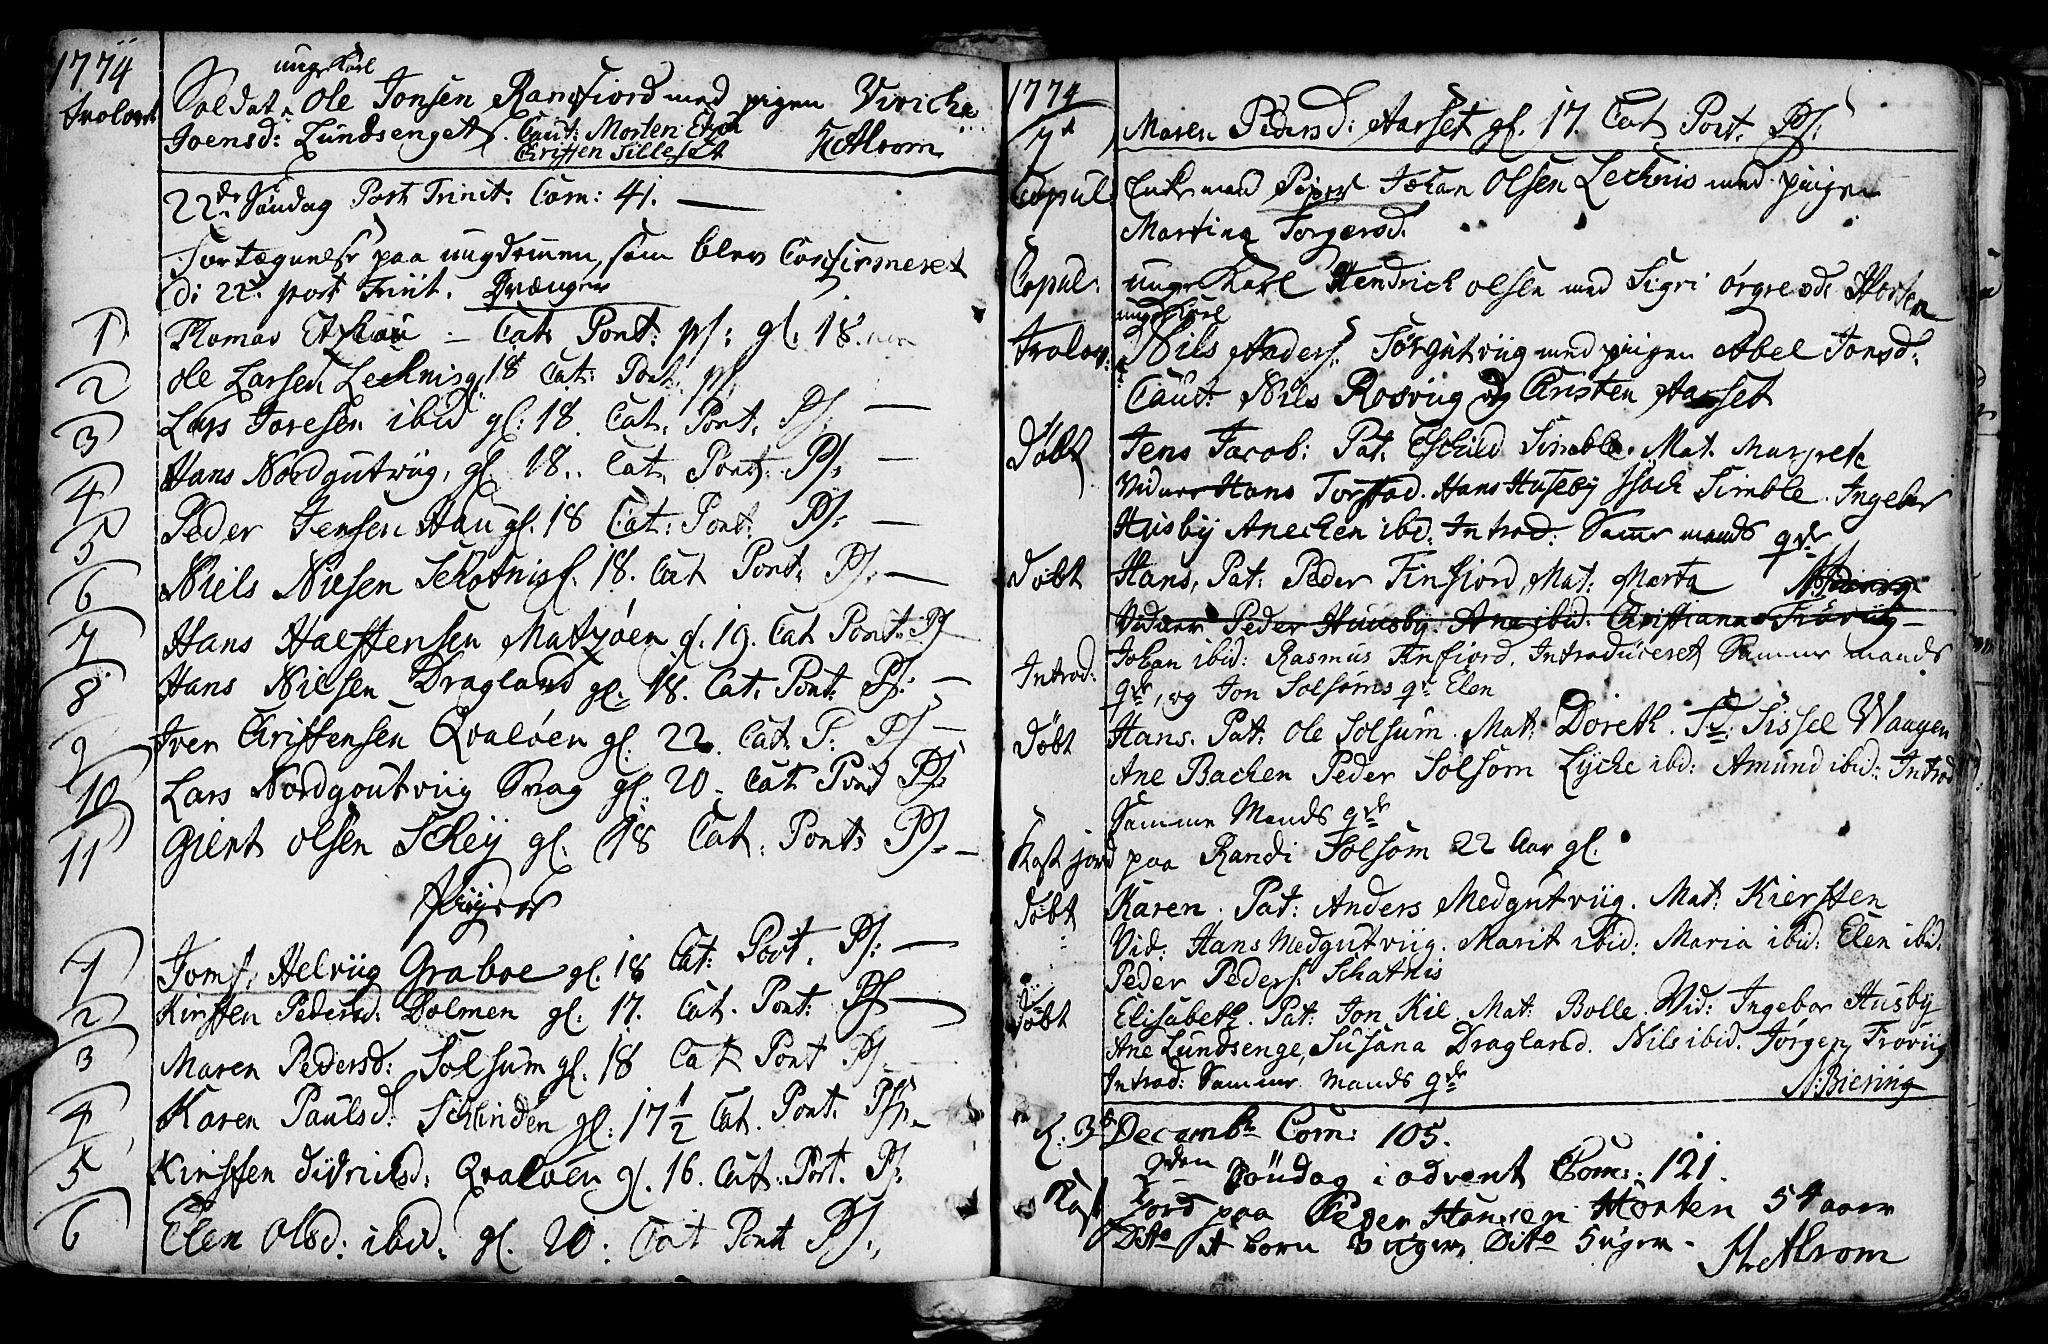 1774
unge Karl
Trolovet Soldat Ole Jonsen Ransfiord med pigen Viviche
Joensd: Lundsenget. Caut: Morten Etzon
Christen Silleset HAlrom
22de Søndag Post Trinit: Com: 41.
Fortægnelse paa ungdommen, som blev Confirmeret
Di 22. post Trinit. Drænger
1 Thomas – Cat: Pont: ps: gl. 18.
2 Ole Larsen Lechnis gl. 18 Cat: Pont: ps:
3 Lars Joresen ibid gl: 18. Cat. Pont. Ps: –
4 Hans Nordgutviig, gl. 18. Cat, Pont. Ps: –
5 Peder Jensen Hau gl. 18 Cat: Pont: Ps: –
6 Niels Nilsen Schotnis gl. 18. Cat Pont: Ps: –
7 Hans Halstensen Matzøen gl. 19. Cat Pont: Ps –
8 Hans Nilsen Dragland gl: 18. Cat. Pont: Ps: –
9 Iver Christensen Qvaløen gl. 22. Cat. P: Ps –
10 Lars Nordgoutviig Svag gl: 20 – Cat Pont Ps:
11 Gient Olsen Schey gl. 18 Cat. Pont: Ps. –
Piiger
1 Jomf. Helviig Graboe gl. 18 Cat: Pont. Ps: –
2 Kirsten Pedersd: Dolmen gl. 17. Cat. Pont: Ps –
3 Maren Pedersd: Solsum gl. 18 Cat Pont Ps. –
4 Karen Paulsd: Schinden gl: 17½ Cat. Pont. Ps: –
5 Kirsten Didrichsd: Qvaløen gl. 16. Cat: Pont. Ps:
6 Elen Olsd: ibid. gl. 20: Cat Pont Ps:,
1774
7d Maren Pedersd: Aarset gl. 17. Cat Pont. Ps:
Copul: Enkemand Johan Olsen Lechnis med piigen
Martina Torgersd.
Copul: unge Karl Hendrich Olsen med Sigri Horten
unge Karl
Trolov: Nils Anders: Sørgutviig med piigen Abel Jonsd:
Caut: Nils Rosviig og Christen Aarset
Døbt Jens Jacob: Pat. Eschild Simble. Mat. Margrete
Viduer Hans Torstad. Hans Huseby Isach Simble. Ingebor
Husby Anechen ibid. Introd: Samme mands qde
Døbt Hans, Pat: Peder Finfiord, Mat: Marta N:Biering
Viduer Peder Huusby. Ane ibid. Christiana Trøviig –
Johan ibid: Rasmus Finfiord. Introduceret Samme mands
Introd: qde, og Jon Solsoms qde Elen
Døbt Hans. Pat: Ole Solsum. Mat: Doreth. Sissel Waagen
Ane Bachen Peder Solsom Lyche ibid: Amund ibid: Introd
Samme Mands qde
Kast jord paa Randi Solsom 22 Aar gl.
Døbt Karen. Pat: Anders Medgutviig. Mat: Kiersten
Vid: Hans Medgutviig. Marit ibid: Maria ibid: Elen ibid:
Peder Peders: Schatnis
Døbt Elisabeth. Pat: Jon Kil. Mat: Bolle. Vid: Ingebor Husby
Ane Lundsenge, Susana Dragland. Nils ibid. Jørgen Trøviig
Introd: Samme mands qde N:Biering
d: 3de Decembr Com: 105.
2den Søndag i advent Com: 121.
Kast Jord paa Peder Hansen Horten 54 aar
Dito et barn 3 uger, Dito 5 uger – HAlrom